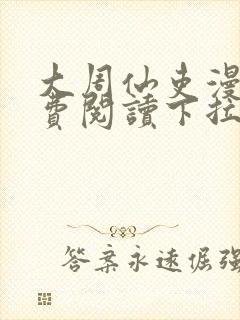 大周仙吏漫
費閱讀下拉
答案永遠倔強